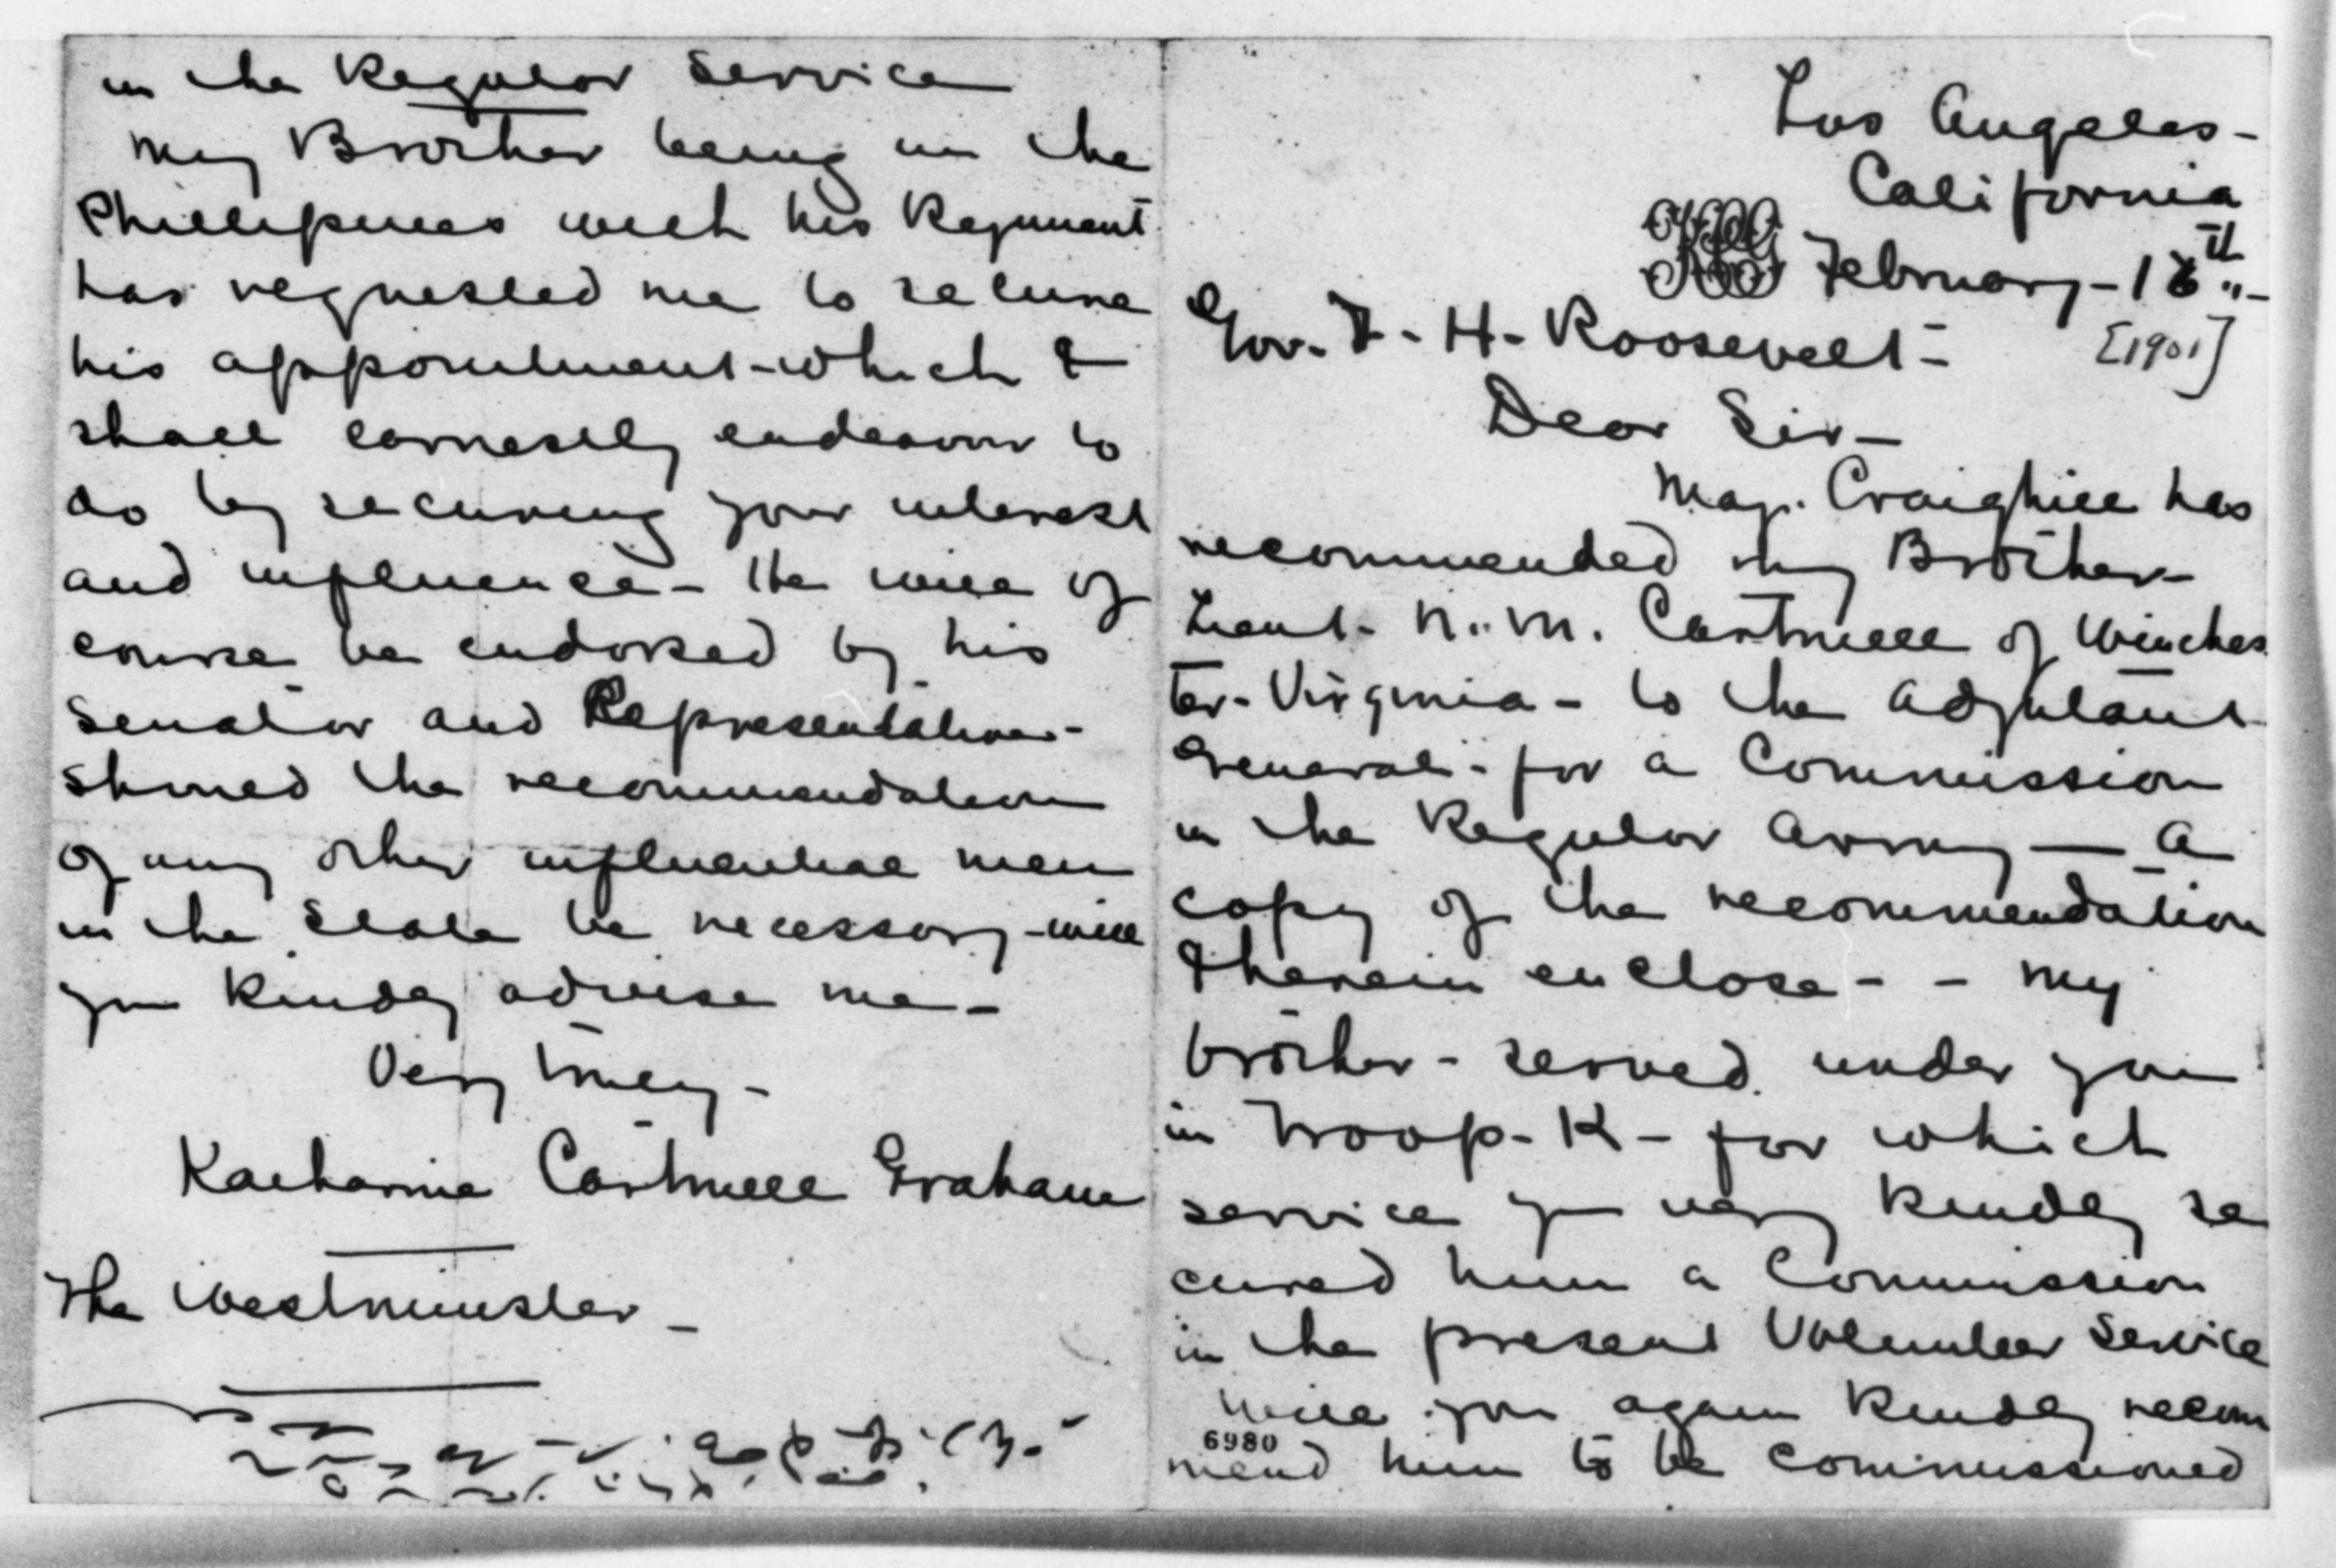 Los Angeles-
California
February-18th"-
[1901]
Gov. T-H-Roosevelt-
Dear Sir-
Maj. Craighill has
recommended my Brother-
Lieut- N. M. Cartmell of Winches
ter-Virginia- to the Adjutant
General- for a Commission
in the Regular Army — A
copy of the recommendation
I herein enclose- - My
brother- served under you
in Troop-K- for which
service you very kindly se
cured him a Commission
in the present Volunteer Service
Will you again kindly recom
6980
mend him to be commissioned
in the Regular Service
My Brother being in the
Phillipines with his Regiment
has requested me to secure
his appointment-which I
shall earnestly endeavour to
do by securing your interest
and influence- He will of
course be endorsed by his
Senator and Representative-
Should the recommendation
of any other influential men
in the State be necessary-will
you kindly advise me-
Very truly-
Katharine Cartmell Graham
The Westminster-